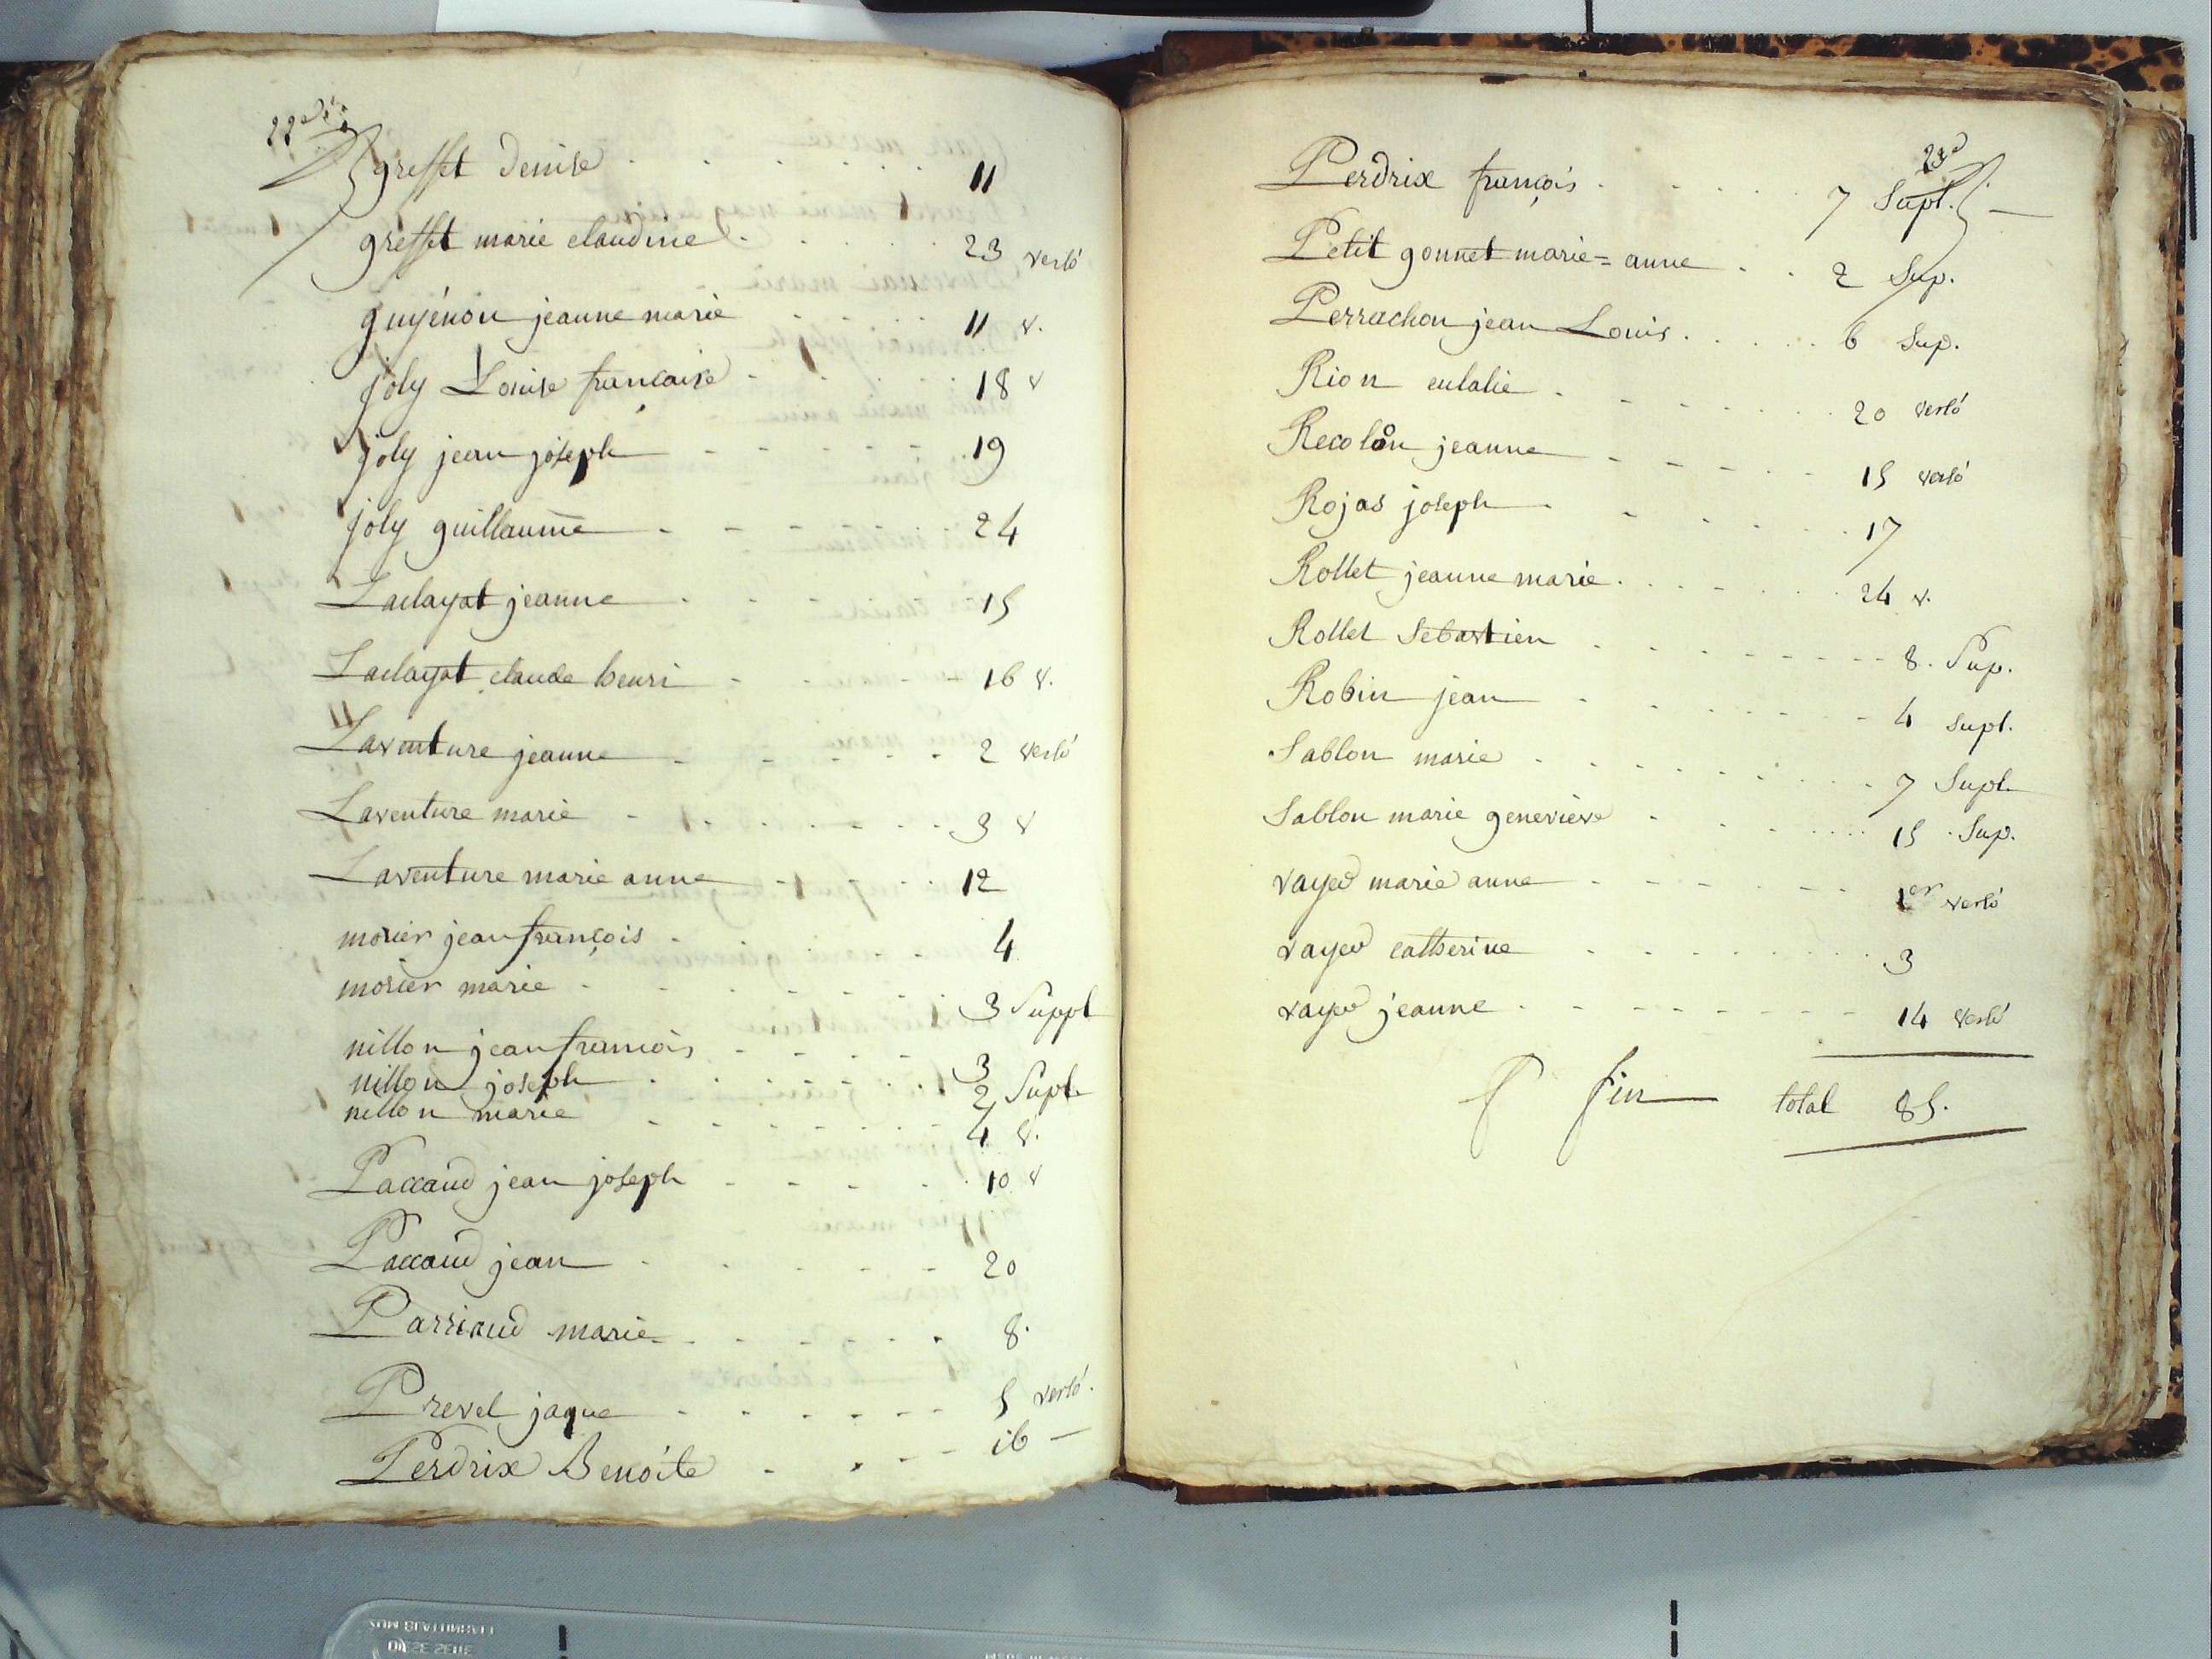 greffet denise 11
greffet marie claudine 23 verso
guyénon jeanne marie 11 v.
joly Louise francaise 18 v
joly jean joseph 19
joly guillaume 24
Laclayat jeanne 15
Laclayat claude henri 16 v.
Laventure jeanne 2 verso
Laventure marie 3 v
Laventure marie anne 12
morier jean françois 4
morier marie 3 Suppl
nillon jean francois 3
nillon joseph 2 Supl.
nillon marie 4 v.
Paccaud jean joseph 10 v
Paccaud jean 20
Parriaud marie 8.
Prevel jaque 5 verso.
Perdrix Benoite 16 —
Perdrix françois 7 Supl.
Petit gonnet marie=anne 2 Sup.
Perrachon jean Louis 6 Sup.
Rion eulalie 20 verso
Recolon jeanne 15 verso
Rojas joseph 17
Rollet jeanne marie 24 v.
Rollet Sebastien 8. Sup.
Robin jean 4 supl.
Sablon marie 7 Supl.
Sablon marie genevieve 15 Sup.
vayed marie anne 1er verso
vayed catherine 3
vayed jeanne 14 verso
fin total 85.